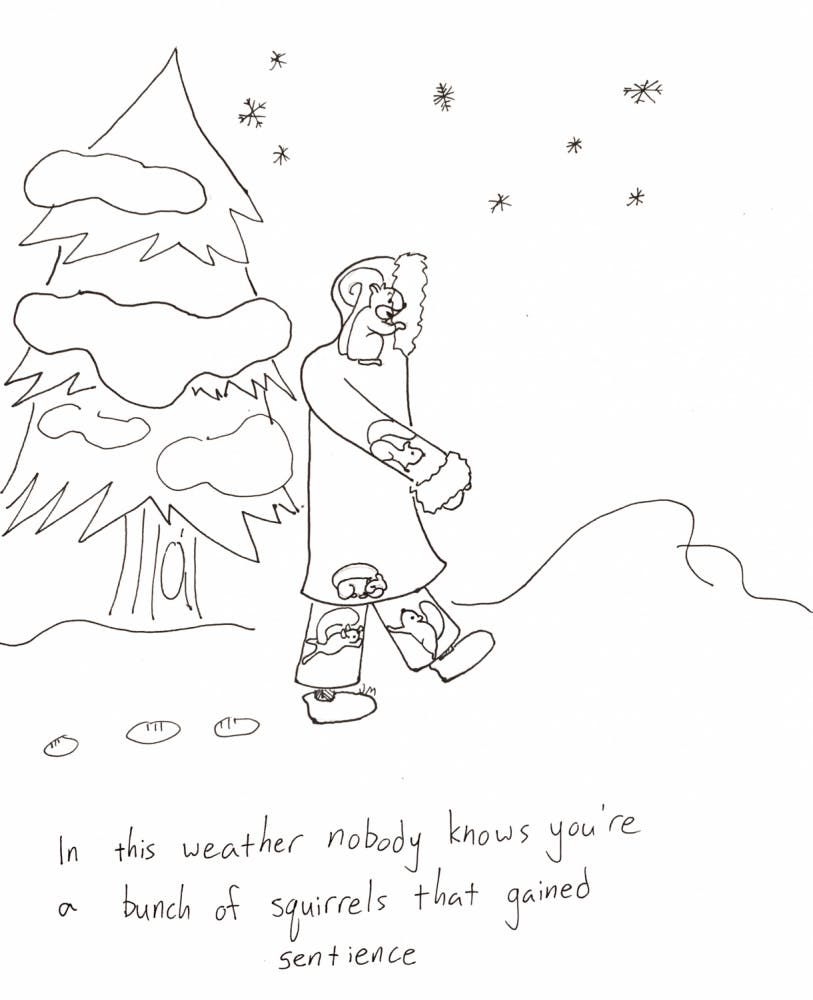 In this weather nobody knows you're
a bunch of squirrels that gained
sentience